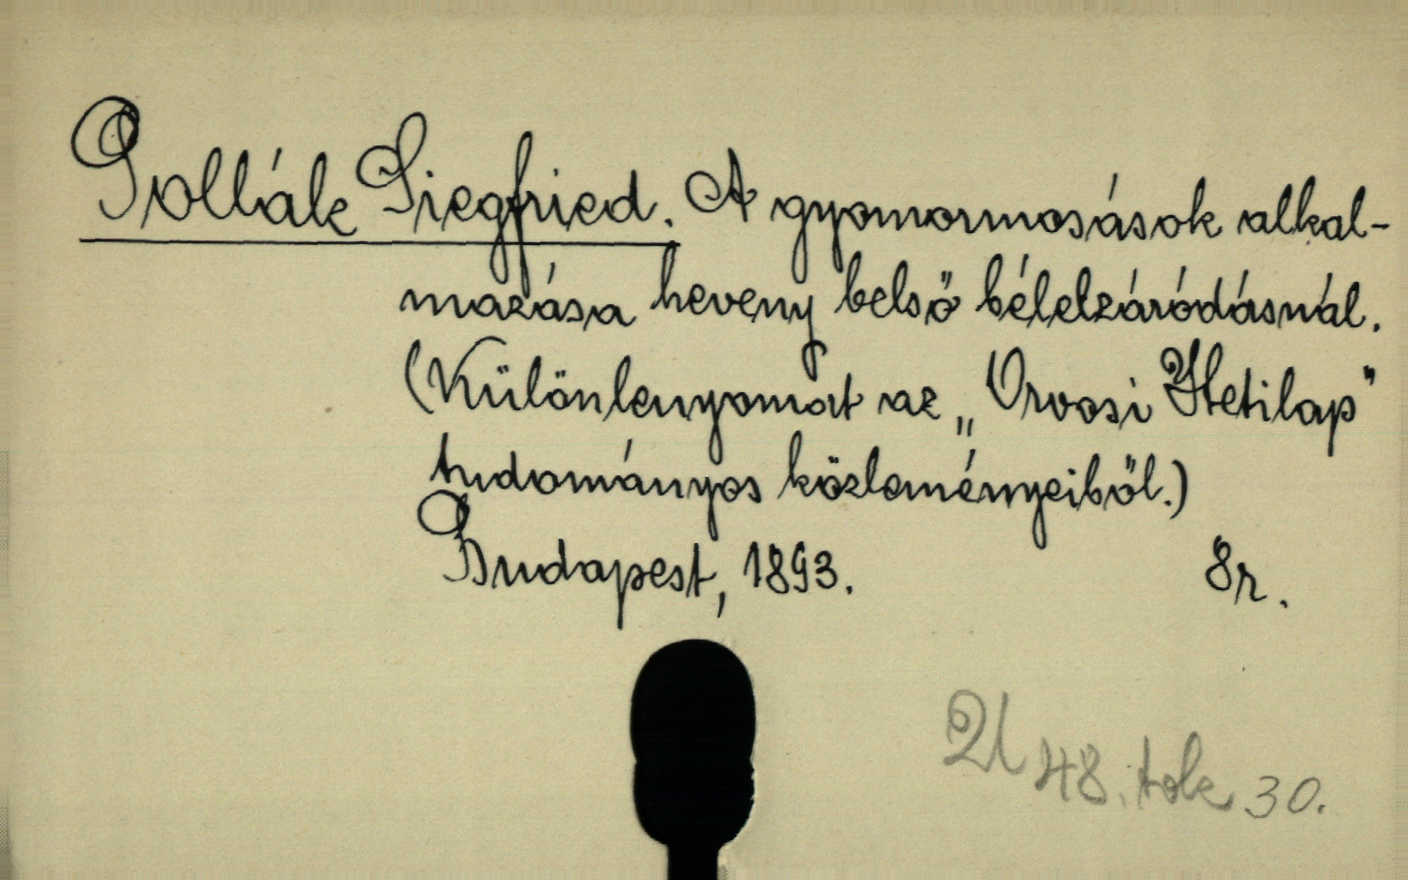 Pollák Siegfried. A gyomormosások alkal-
mazása heveny belső bélelzáródásnál.
(Különlenyomat az „Orvosi Hetilap"
tudományos közleményeiből.)
Budapest, 1893. 8r.
U 48. tok 30.